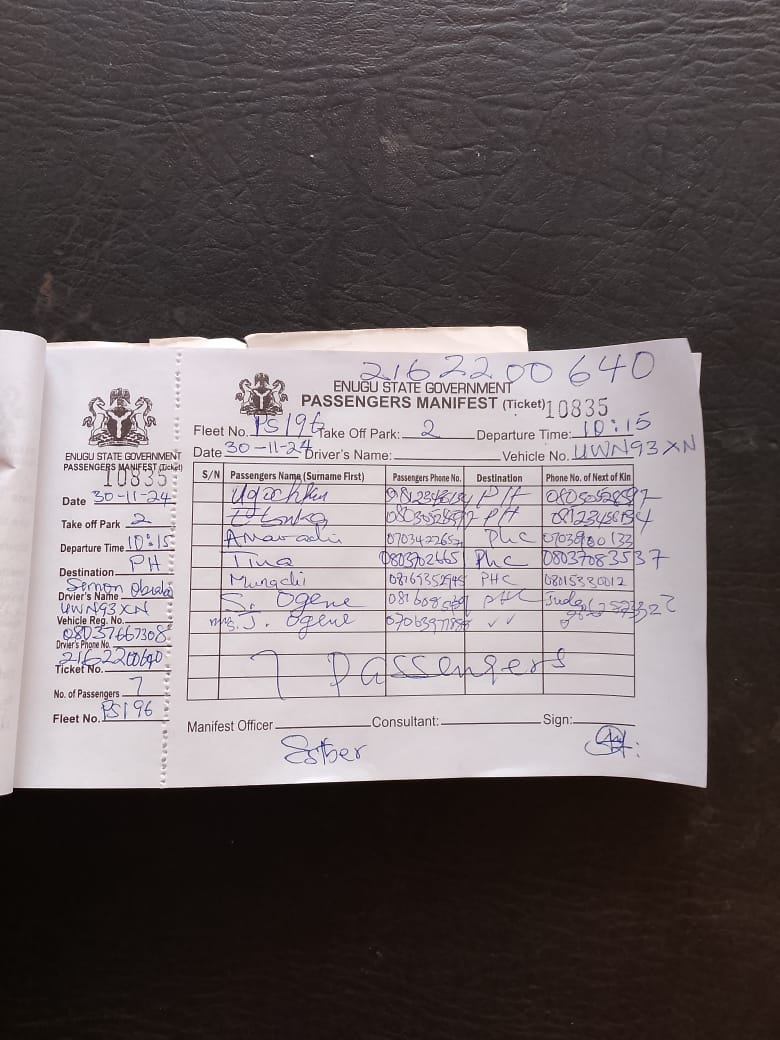 ENUGU STATE GOVERNMENT
PASSENGERS MANIFEST (Ticket)
10835
Date 30-11-24
Take off Park 2
Departure Time 10:15
Destination PH
Driver's Name Semon
Vehicle Reg. No. UWN93XN
Drvier's Phone No. 08037667308
Ticket No. 2162200640
No. of Passengers 7
Fleet No. PS196
2162200640
ENUGU STATE GOVERNMENT
PASSENGERS MANIFEST (Ticket) 10835
Fleet No. PS196 Take Off Park: 2 Departure Time: 10:15
Date 30-11-24 Driver's Name: Vehicle No. UWN93XN
S/N Passengers Name (Surname First) Passengers Phone No. Destination Phone No. of Next of Kin
PH
PH
Phc
Tina 0803702665 Phc 08037083537
Munachi PHC 08015330012
S. Ogene PHC Jude
mrs. J. Ogene ✓✓
7 Passengers
Manifest Officer Consultant: Sign:
Esther